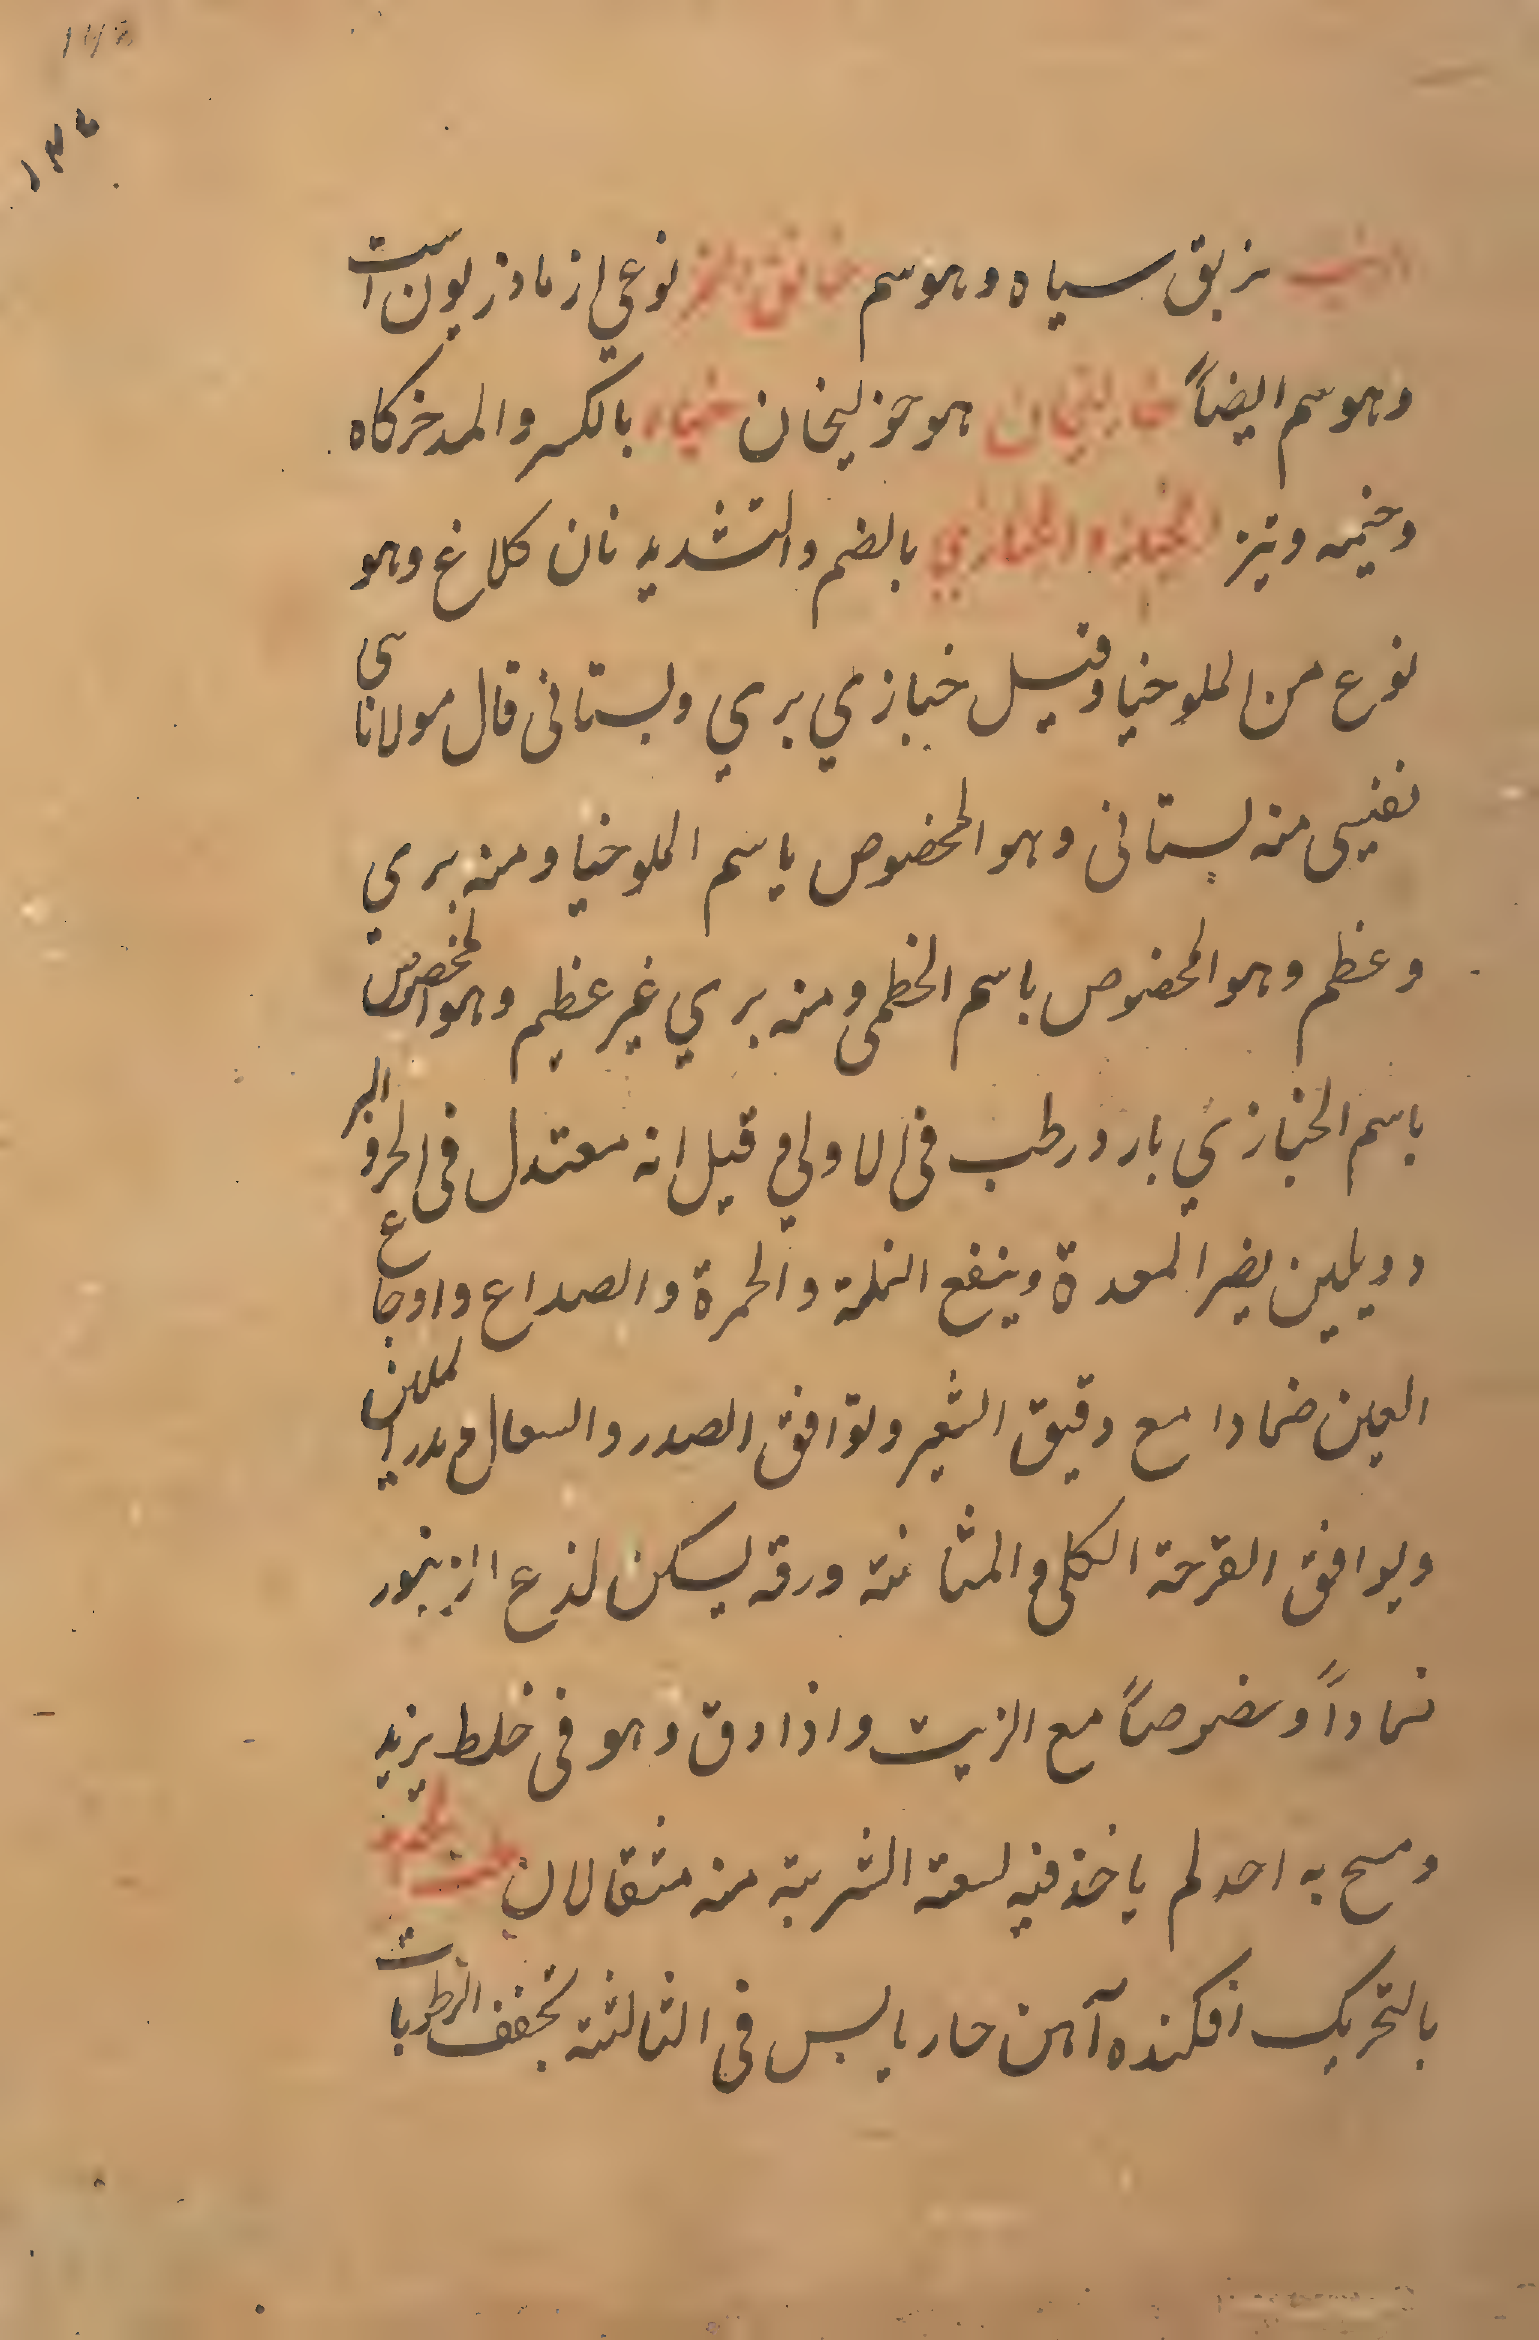 الذئب خربق سیاه وهو سم خانق النمر نوعی از ماذریون است
وهو سم ایضاً خاولنجان هو خولنجان خباء بالکسر والمد خرکاه
وخیمه ونیز الخبازه الخبازي بالضم والتشدید نان کلاغ وهو
نوع من الملوخیا وقیل خبازي بري وبستانی قال مولانا
نفیسی منه بستانی وهو المخصوص باسم الملوخیا ومنه بري
وعظم وهو المخصوص باسم الخطمی ومنه بري غیر عظیم وهو المخصوص
باسم الخبازي بارد رطب فی الاولي وقیل انه معتدل فی الحر والبر
د ویلین یضر المعدة وینفع النملة والحمرة والصداع واوجاع
العین ضمادا مع دقیق الشعیر ویوافق الصدر والسعال ویدر اللبن
ویوافق القرحة الکلی والمثانة ورقه یسکن لذع الزنبور
ضماداً وخصوصاً مع الزیت واذا دق وهو فی خلط یزید
ومسح به احد لم یاخذ فیه لسعة الشربة منه مثقالان خبث الحدید
بالتحریک افکنده آهن حار یابس فی الثالثة یجفف الرطوبات